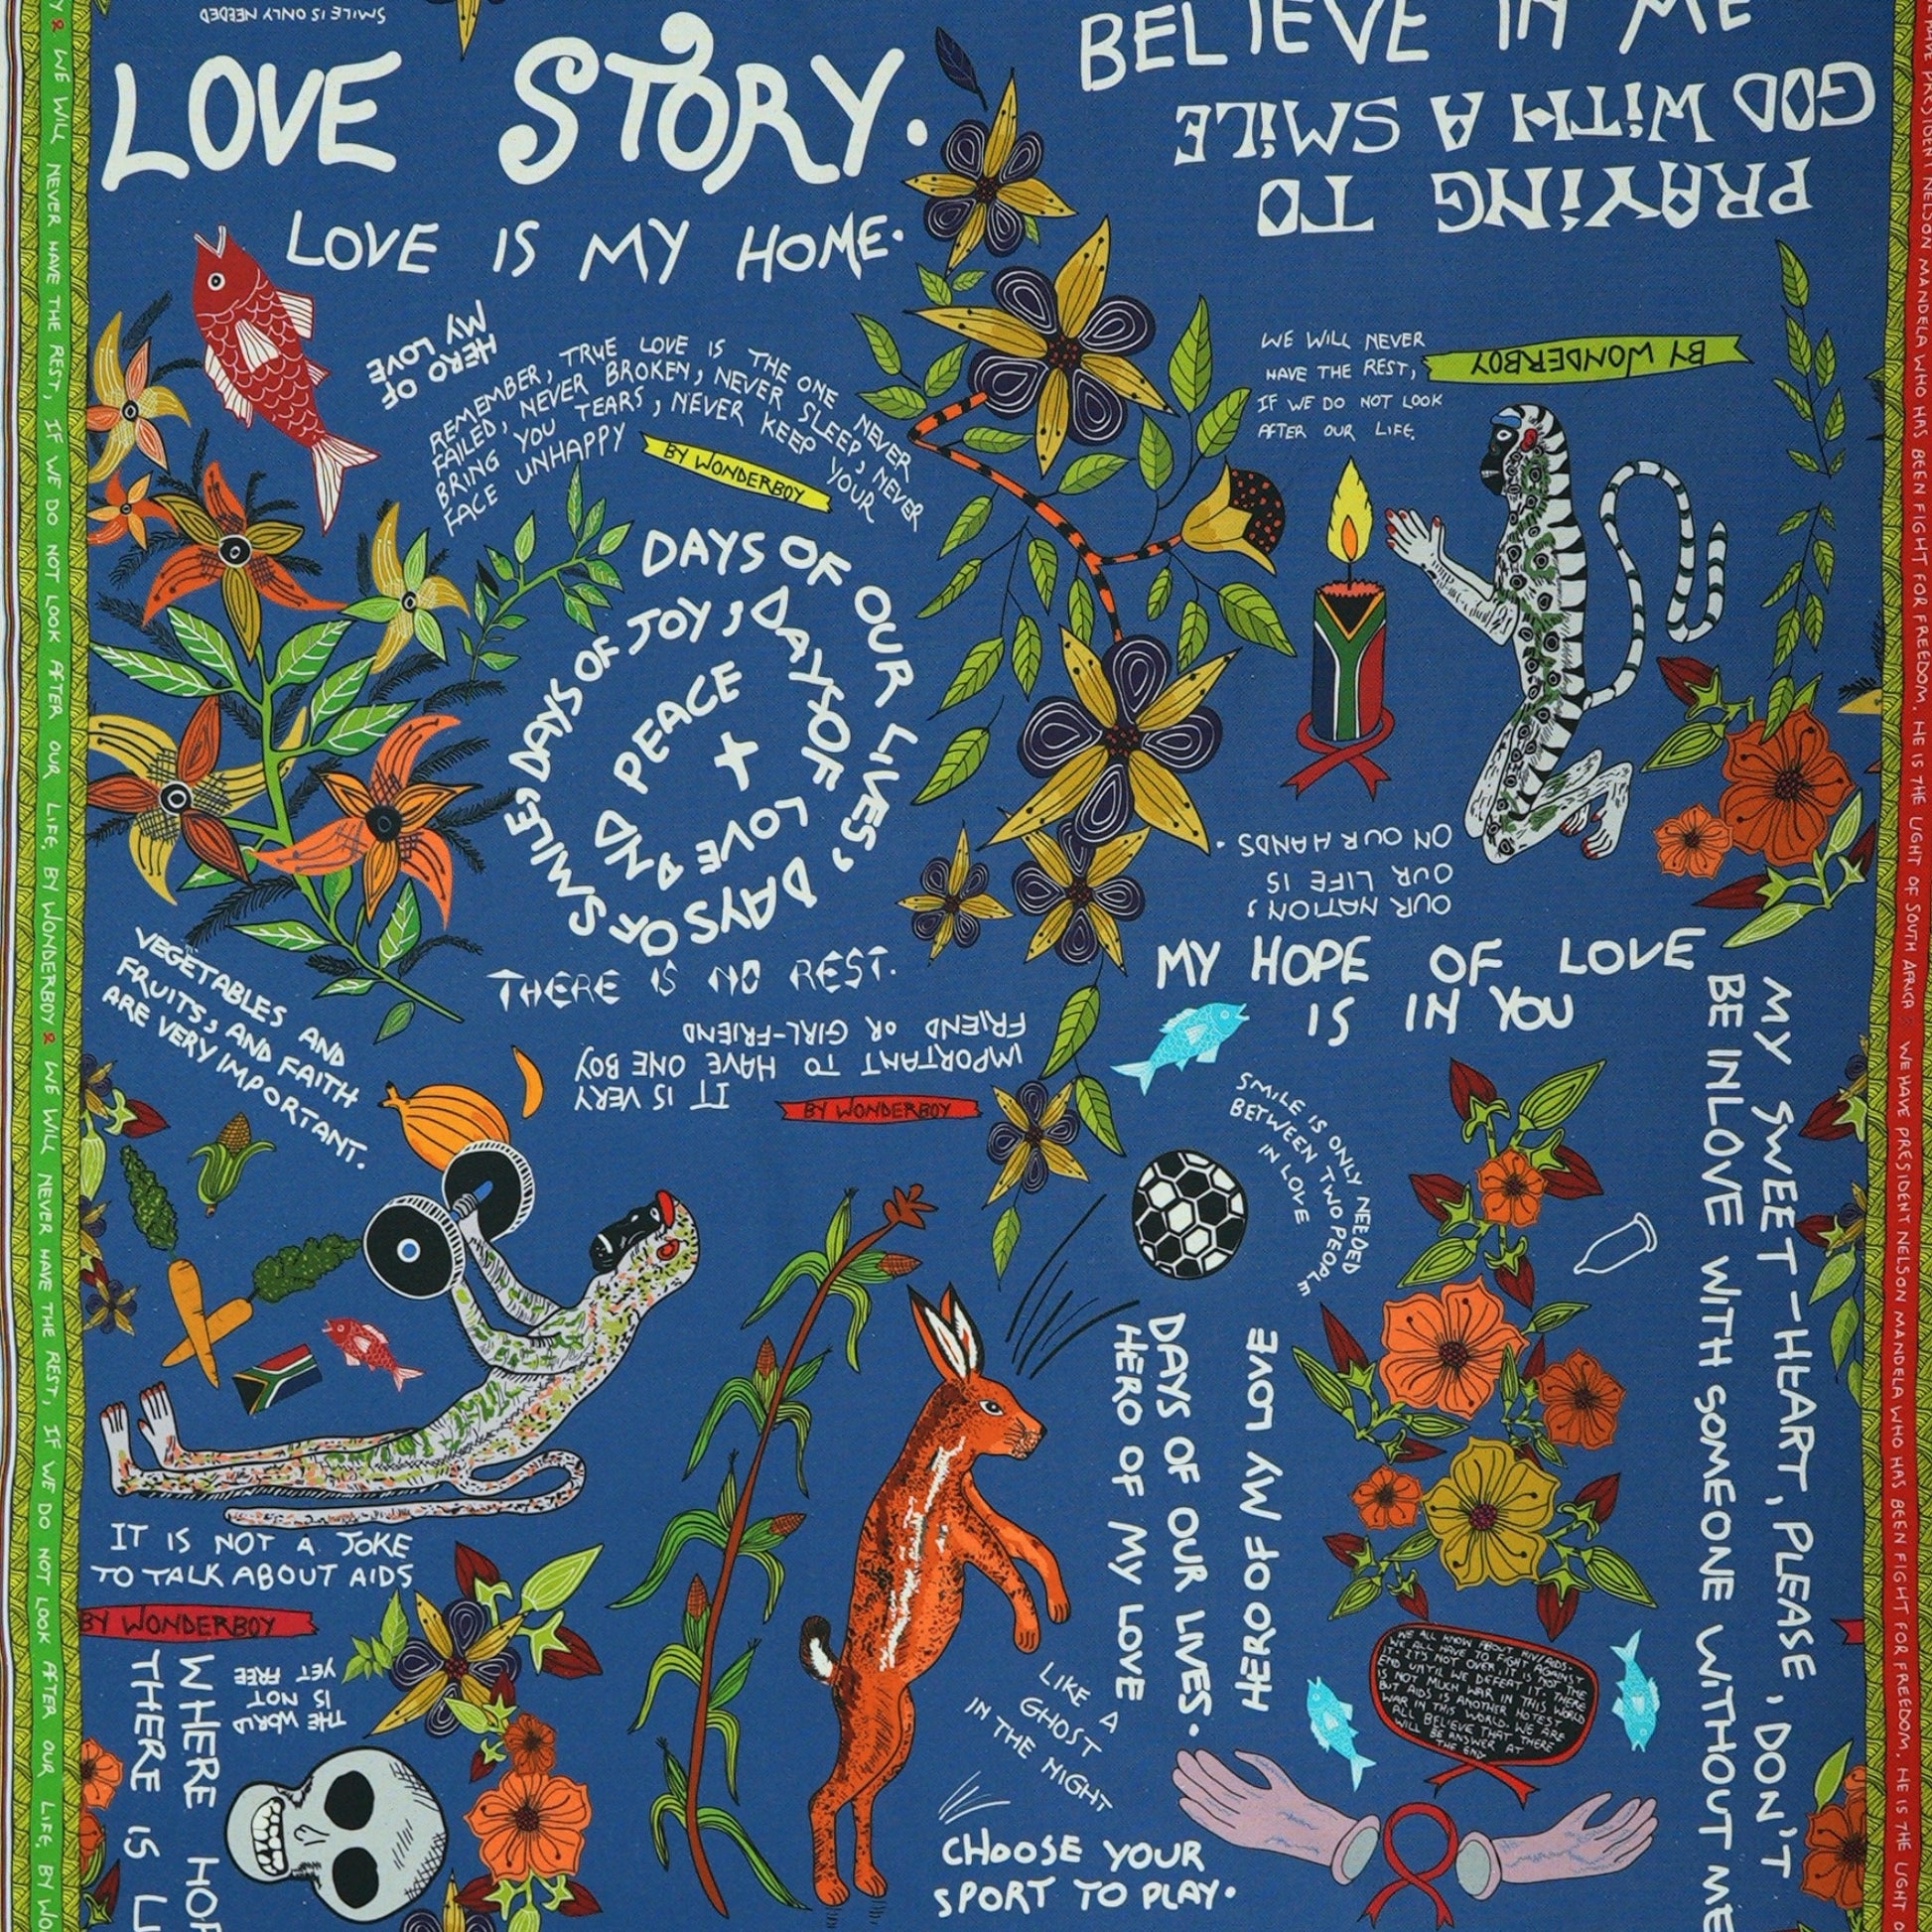 SMILE IS ONLY NEEDED
LOVE STORY.
LOVE IS MY HOME.
BELIEVE IN ME
PRAYING TO
GOD WITH A SMILE
HERO OF
MY LOVE
REMEMBER, TRUE LOVE IS THE ONE NEVER
FAILED, NEVER BROKEN, NEVER SLEEP, NEVER
BRING YOU TEARS, NEVER KEEP YOUR
FACE UNHAPPY
BY WONDERBOY
WE WILL NEVER
HAVE THE REST,
IF WE DO NOT LOOK
AFTER OUR LIFE.
BY WONDERBOY
DAYS OF OUR LIVES, DAYS OF SMILE, DAYS OF JOY, DAYS OF LOVE AND PEACE +
THERE IS NO REST.
OUR NATION,
OUR LIFE IS
ON OUR HANDS.
MY HOPE OF LOVE
IS IN YOU
VEGETABLES AND
FRUITS, AND FAITH
ARE VERY IMPORTANT.
IT IS VERY
IMPORTANT TO HAVE ONE BOY
FRIEND OR GIRL-FRIEND
BY WONDERBOY
SMILE IS ONLY NEEDED
BETWEEN TWO PEOPLE
IN LOVE
MY SWEET-HEART, PLEASE, DON'T
BE INLOVE WITH SOMEONE WITHOUT ME
HERO OF MY LOVE
DAYS OF OUR LIVES.
HERO OF MY LOVE
IT IS NOT A JOKE
TO TALK ABOUT AIDS
BY WONDERBOY
THE WORLD
IS NOT
YET FREE
WHERE HOP
THERE IS L
LIKE A
GHOST
IN THE NIGHT
CHOOSE YOUR
SPORT TO PLAY.
WE ALL KNOW ABOUT HIV/AIDS.
WE ALL HAVE TO FIGHT AGAINST
IT. IT'S NOT OVER, IT IS NOT THE
END UNTIL WE DEFEAT IT. THERE
IS NOT MUCH WAR IN THIS WORLD
BUT AIDS IS ANOTHER HOTEST
WAR IN THIS WORLD. WE ARE
ALL BELIEVE THAT THERE
WILL BE ANSWER AT
THE END
WE WILL NEVER HAVE THE REST, IF WE DO NOT LOOK AFTER OUR LIFE. BY WONDERBOY WE WILL NEVER HAVE THE REST, IF WE DO NOT LOOK AFTER OUR LIFE. BY WO
PRESIDENT NELSON MANDELA WHO HAS BEEN FIGHT FOR FREEDOM. HE IS THE LIGHT OF SOUTH AFRICA. WE HAVE PRESIDENT NELSON MANDELA WHO HAS BEEN FIGHT FOR FREEDOM. HE IS THE LIGHT O